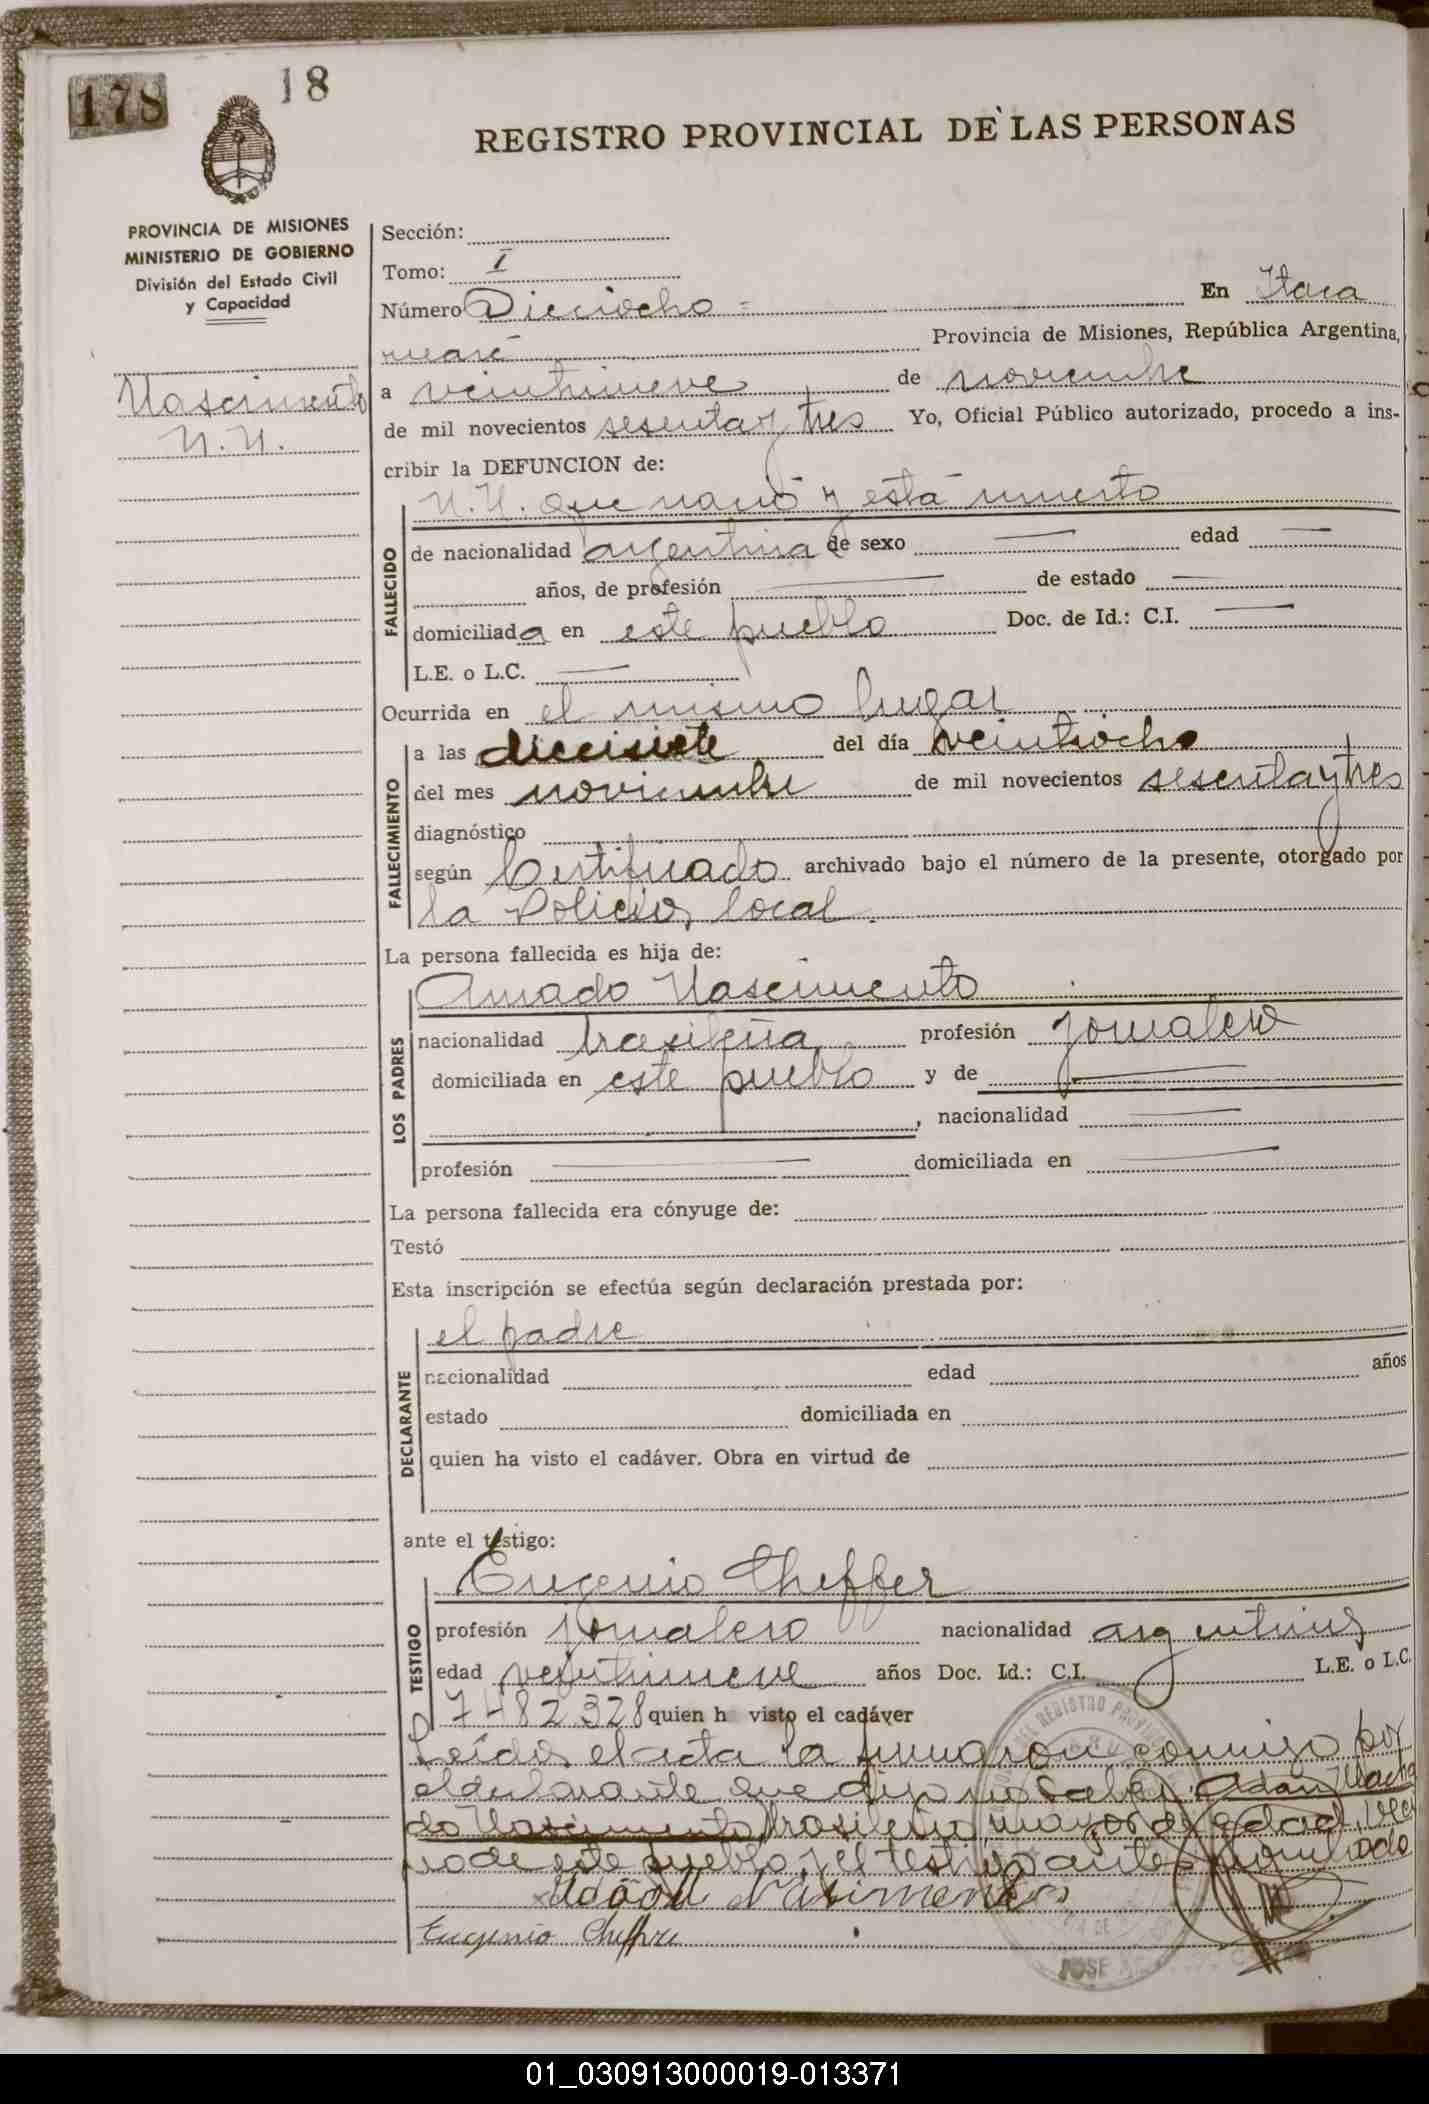 178
18
REGISTRO PROVINCIAL DE LAS PERSONAS
PROVINCIA DE MISIONES
MINISTERIO DE GOBIERNO
División del Estado Civil
y Capacidad
Nascimento
N.N.
Sección:
Tomo: I
Número Dieciocho = En Itaca
ruaré Provincia de Misiones, República Argentina,
a veintinueve de noviembre
de mil novecientos sesenta y tres Yo, Oficial Público autorizado, procedo a ins-
cribir la DEFUNCION de:
FALLECIDO
N.N. que nació y está muerto
de nacionalidad argentina de sexo — edad —
años, de profesión — de estado —
domiciliada en este pueblo Doc. de Id.: C.I. —
L.E. o L.C. —
Ocurrida en el mismo lugar
FALLECIMIENTO
a las diecisiete del día veintiocho
del mes noviembre de mil novecientos sesenta y tres
diagnóstico
según Certificado archivado bajo el número de la presente, otorgado por
la Policía local.
La persona fallecida es hija de:
LOS PADRES
Amado Nascimento
nacionalidad brasileña profesión jornalero
domiciliada en este pueblo y de —
, nacionalidad —
profesión — domiciliada en —
La persona fallecida era cónyuge de:
Testó
Esta inscripción se efectúa según declaración prestada por:
DECLARANTE
el padre
nacionalidad edad años
estado domiciliada en
quien ha visto el cadáver. Obra en virtud de
ante el testigo:
TESTIGO
Eugenio Cheffer
profesión jornalero nacionalidad argentino
edad veintinueve años Doc. Id.: C.I. L.E. o L.C.
7482328 quien h visto el cadáver
Leída el acta la firmaron conmigo por
el declarante que dijo no saber Adan Macha
do Nascimento, brasileño, mayor de edad, veci
no de este pueblo, y el testigo antes nombrado
Eugenio Cheffre
JOSE
01_030913000019-013371